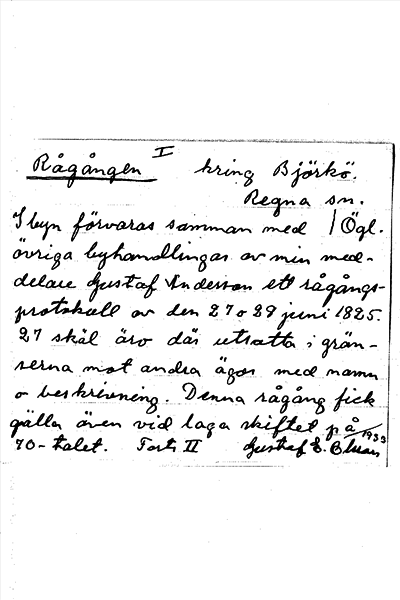 Rågången I kring Björkö.
Regna sn.
I byn förvaras samman med / Ögl.
övriga byhandlingar av min med-
delare Gustaf Andersson ett rågångs-
protokoll av den 27 o 29 juni 1825.
27 skäl äro där utsatta i grän-
serna mot andra ägor med namn
o beskrivning. Denna rågång fick
gälla även vid laga skiftet på
70-talet. Forts II Gustaf E. 1933